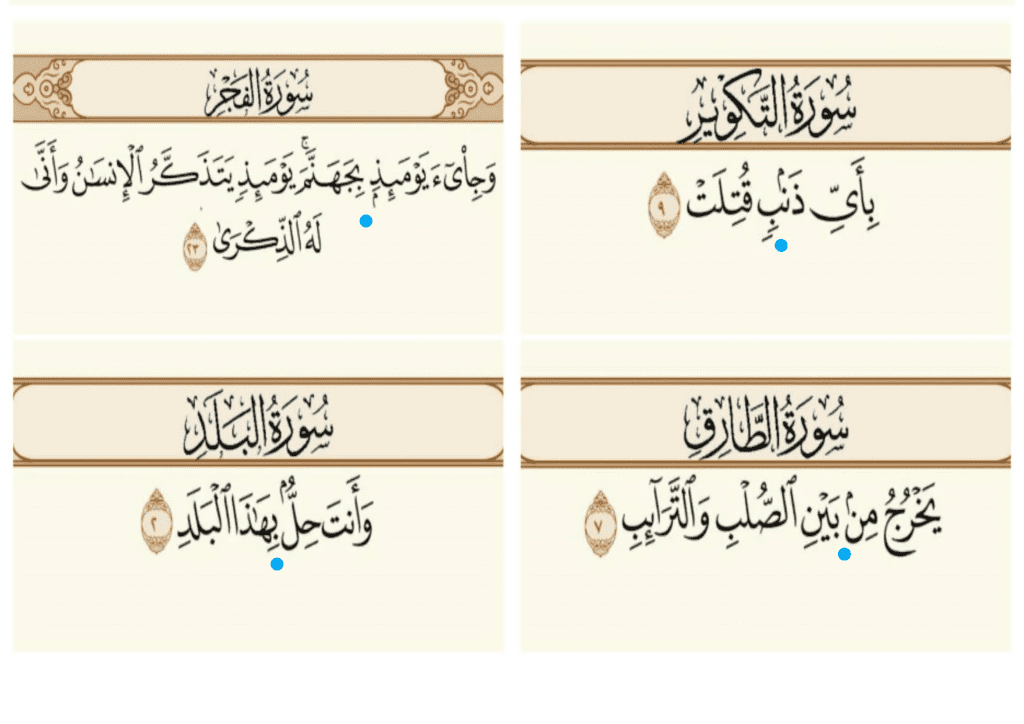 سُورَةُ التَّكْوِيرِ
بِأَيِّ ذَنۢبٍ قُتِلَتْ ٩
سُورَةُ الفَجْرِ
وَجِا۟ىٓءَ يَوْمَئِذٍۭ بِجَهَنَّمَ ۚ يَوْمَئِذٍ يَتَذَكَّرُ ٱلْإِنسَـٰنُ وَأَنَّىٰ
لَهُ ٱلذِّكْرَىٰ ٢٣
سُورَةُ الطَّارِقِ
يَخْرُجُ مِنۢ بَيْنِ ٱلصُّلْبِ وَٱلتَّرَآئِبِ ٧
سُورَةُ البَلَدِ
وَأَنتَ حِلٌّۢ بِهَـٰذَا ٱلْبَلَدِ ٢